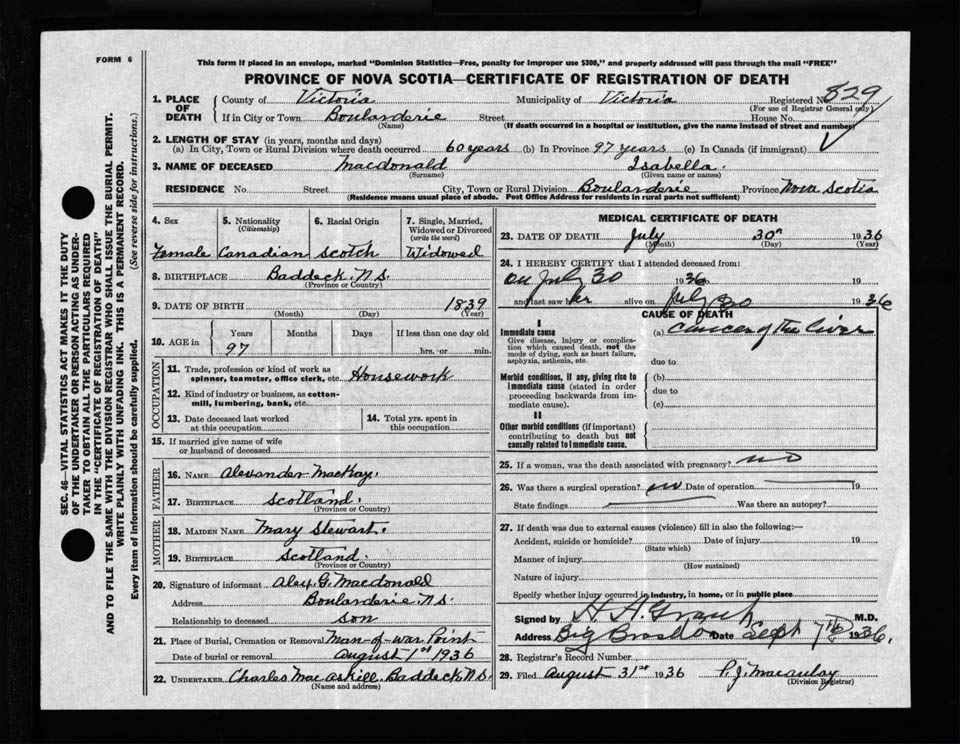 FORM 6
This form if placed in an envelope, marked "Dominion Statistics—Free, penalty for improper use $300," and properly addressed will pass through the mail "FREE"
PROVINCE OF NOVA SCOTIA—CERTIFICATE OF REGISTRATION OF DEATH
SEC. 46—VITAL STATISTICS ACT MAKES IT THE DUTY
OF THE UNDERTAKER OR PERSON ACTING AS UNDER-
TAKER TO OBTAIN ALL THE PARTICULARS REQUIRED
IN THE "CERTIFICATE OF REGISTRATION OF DEATH"
AND TO FILE THE SAME WITH THE DIVISION REGISTRAR WHO SHALL ISSUE THE BURIAL PERMIT.
WRITE PLAINLY WITH UNFADING INK. THIS IS A PERMANENT RECORD.
Every item of information should be carefully supplied. (See reverse side for instructions.)
1. PLACE OF DEATH
County of Victoria Municipality of Victoria Registered No. 829
(For use of Registrar General only)
If in City or Town Boularderie Street House No.
(Name) (If death occurred in a hospital or institution, give the name instead of street and number)
2. LENGTH OF STAY (in years, months and days)
(a) In City, Town or Rural Division where death occurred 60 years (b) In Province 97 years (c) In Canada (if immigrant)
3. NAME OF DECEASED Macdonald Isabella.
(Surname) (Given name or names)
RESIDENCE No. Street City, Town or Rural Division Boularderie Province Nova Scotia
(Residence means usual place of abode. Post Office Address for residents in rural parts not sufficient)
4. Sex
Female
5. Nationality
(Citizenship)
Canadian
6. Racial Origin
Scotch
7. Single, Married,
Widowed or Divorced
(write the word)
Widowed
8. BIRTHPLACE Baddeck, N.S.
(Province or Country)
9. DATE OF BIRTH 1839
(Month) (Day) (Year)
10. AGE in
Years Months Days If less than one day old
97 hrs. or min.
OCCUPATION
11. Trade, profession or kind of work as
spinner, teamster, office clerk, etc. Housework
12. Kind of industry or business, as cotton-
mill, lumbering, bank, etc.
13. Date deceased last worked
at this occupation
14. Total yrs. spent in
this occupation
15. If married give name of wife
or husband of deceased
FATHER
16. NAME Alexander MacKay.
17. BIRTHPLACE Scotland.
(Province or Country)
MOTHER
18. MAIDEN NAME Mary Stewart.
19. BIRTHPLACE Scotland.
(Province or Country)
20. Signature of informant Alex. G. Macdonald
Address Boularderie N.S.
Relationship to deceased son
21. Place of Burial, Cremation or Removal Man-of-war Point
Date of burial or removal August 1st 1936
22. UNDERTAKER Charles Macaskill Baddeck N.S.
(Name and address)
MEDICAL CERTIFICATE OF DEATH
23. DATE OF DEATH July 30th 1936
(Month) (Day) (Year)
24. I HEREBY CERTIFY that I attended deceased from:
on July 30 1936
and last saw her alive on July 30 1936
CAUSE OF DEATH
I
Immediate cause
Give disease, injury or complica-
tion which caused death, not the
mode of dying, such as heart failure,
asphyxia, asthenia, etc.
(a) Cancer of the liver
due to
Morbid conditions, if any, giving rise to
immediate cause (stated in order
proceeding backwards from im-
mediate cause).
(b)
due to
(c)
II
Other morbid conditions (if important)
contributing to death but not
causally related to immediate cause.
25. If a woman, was the death associated with pregnancy? no
26. Was there a surgical operation? no Date of operation 19
State findings Was there an autopsy?
27. If death was due to external causes (violence) fill in also the following:—
Accident, suicide or homicide? Date of injury 19
(State which)
Manner of injury
(How sustained)
Nature of injury
Specify whether injury occurred in industry, in home, or in public place
Signed by H A Grant M.D.
Address Big Bras d'Or Date Sept 7th 1936.
28. Registrar's Record Number
29. Filed August 31st 1936 P. J. Macaulay
(Division Registrar)